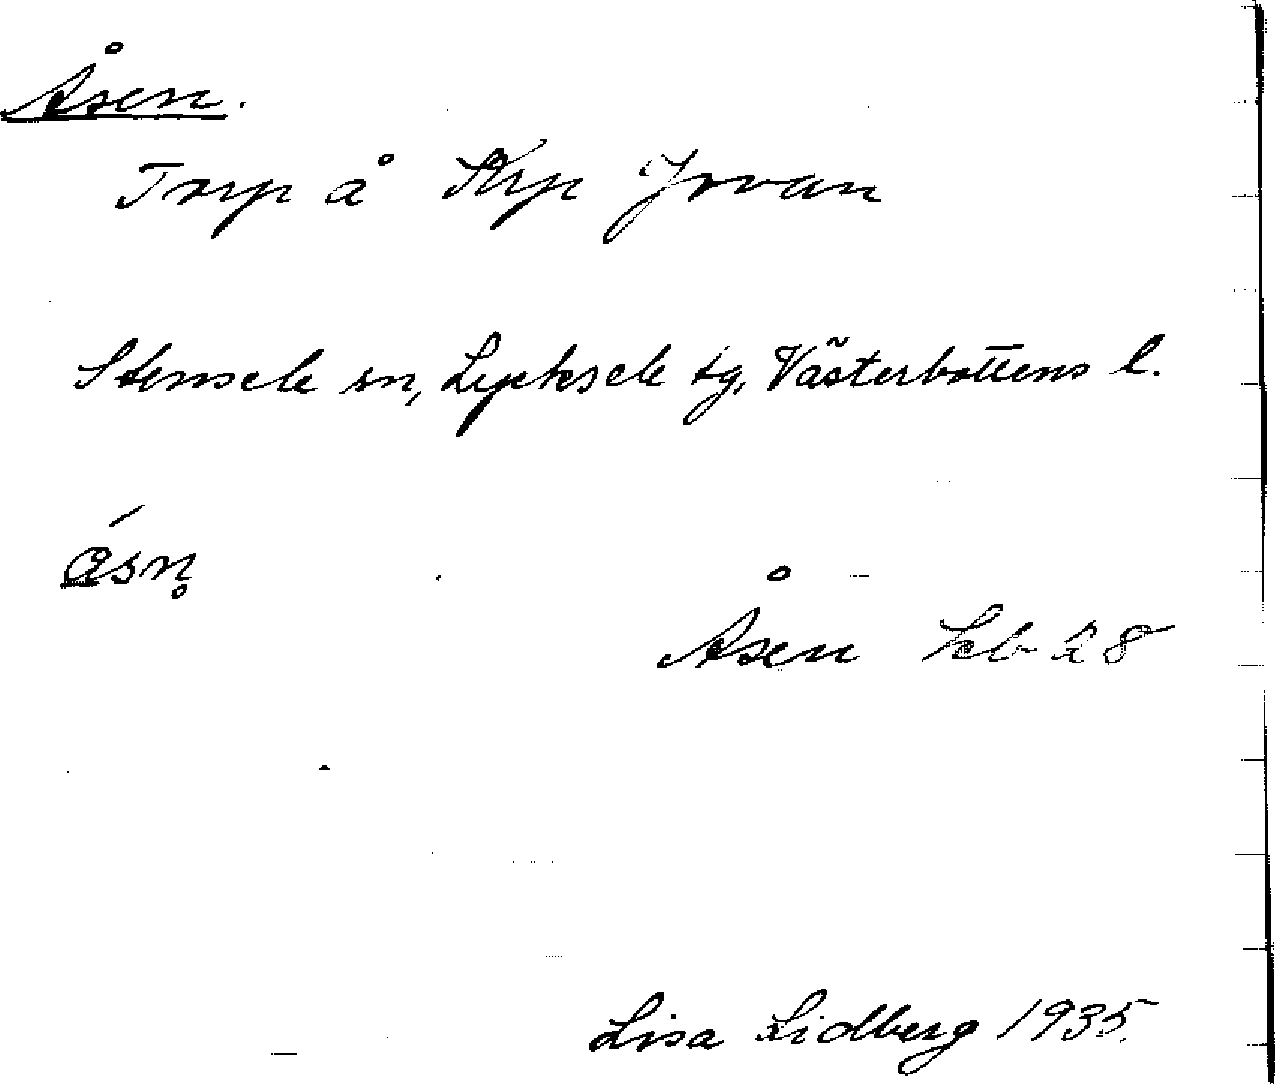 Åsen.
Torp å Krp Joran
Stensele sn, Lycksele tg, Västerbottens l.
åsn̥
Åsen Lb 28
Lisa Lidberg 1935.